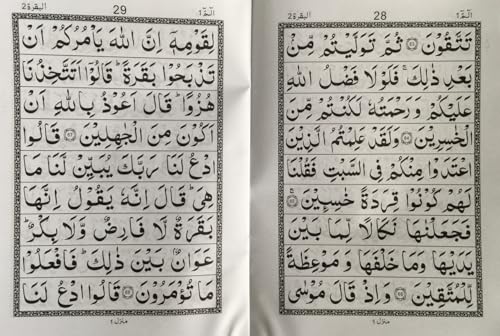 الٓمّٓ ١
28
البقرة ٢
تَتَّقُوْنَ ﴿٦٣﴾ ثُمَّ تَوَلَّيْتُمْ مِّنْۢ
بَعْدِ ذٰلِكَ ۚ فَلَوْلَا فَضْلُ اللّٰهِ
عَلَيْكُمْ وَرَحْمَتُهٗ لَكُنْتُمْ مِّنَ
الْخٰسِرِيْنَ ﴿٦٤﴾ وَلَقَدْ عَلِمْتُمُ الَّذِيْنَ
اعْتَدَوْا مِنْكُمْ فِى السَّبْتِ فَقُلْنَا
لَهُمْ كُوْنُوْا قِرَدَةً خٰسِـِٕيْنَ ۚ ﴿٦٥﴾
فَجَعَلْنٰهَا نَكَالًا لِّمَا بَيْنَ
يَدَيْهَا وَمَا خَلْفَهَا وَ مَوْعِظَةً
لِّلْمُتَّقِيْنَ ﴿٦٦﴾ وَاِذْ قَالَ مُوْسٰى
منزل ١
الٓمّٓ ١
29
البقرة ٢
لِقَوْمِهٖۤ اِنَّ اللّٰهَ يَاْمُرُكُمْ اَنْ
تَذْبَحُوْا بَقَرَةً ؕ قَالُوْۤا اَتَتَّخِذُنَا
هُزُوًا ؕ قَالَ اَعُوْذُ بِاللّٰهِ اَنْ
اَكُوْنَ مِنَ الْجٰهِلِيْنَ ﴿٦٧﴾ قَالُوا
ادْعُ لَنَا رَبَّكَ يُبَيِّنْ لَّنَا مَا
هِىَ ؕ قَالَ اِنَّهٗ يَقُوْلُ اِنَّهَا
بَقَرَةٌ لَّا فَارِضٌ وَّلَا بِكْرٌ ؕ
عَوَانٌۢ بَيْنَ ذٰلِكَ ؕ فَافْعَلُوْا
مَا تُؤْمَرُوْنَ ﴿٦٨﴾ قَالُوا ادْعُ لَنَا
منزل ١